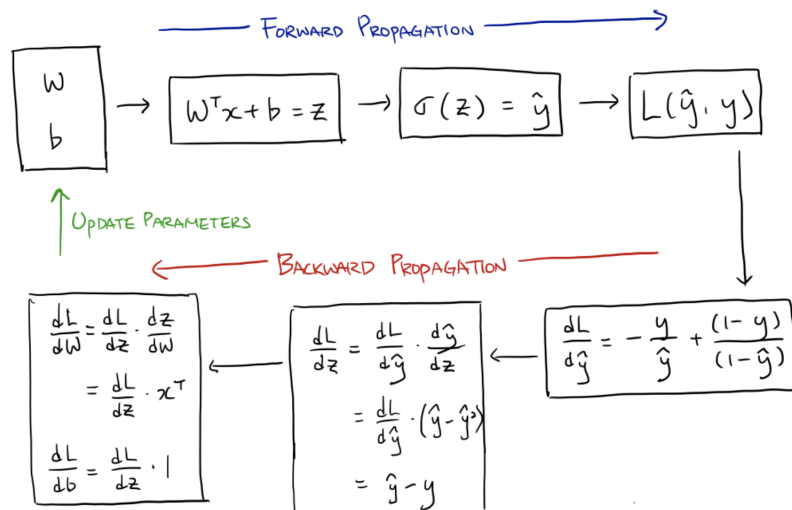 FORWARD PROPAGATION
W
b
Wᵀx + b = z
σ(z) = ŷ
L(ŷ, y)
UPDATE PARAMETERS
BACKWARD PROPAGATION
dL/dW = dL/dz · dz/dW
= dL/dz · xᵀ
dL/db = dL/dz · 1
dL/dz = dL/dŷ · dŷ/dz
= dL/dŷ · (ŷ - ŷ²)
= ŷ - y
dL/dŷ = - y/ŷ + (1 - y)/(1 - ŷ)